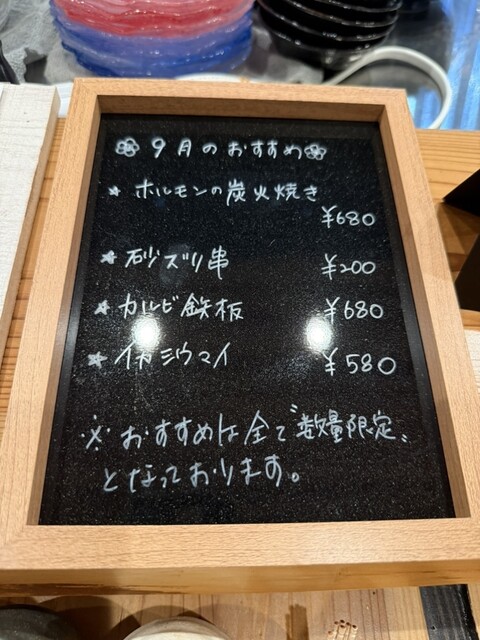 ❀9月のおすすめ❀
★ ホルモンの炭火焼き
¥680
★ 砂ズリ串 ¥200
★ カルビ鉄板 ¥680
★ イカシウマイ ¥580
※おすすめは全て数量限定、
となっております。